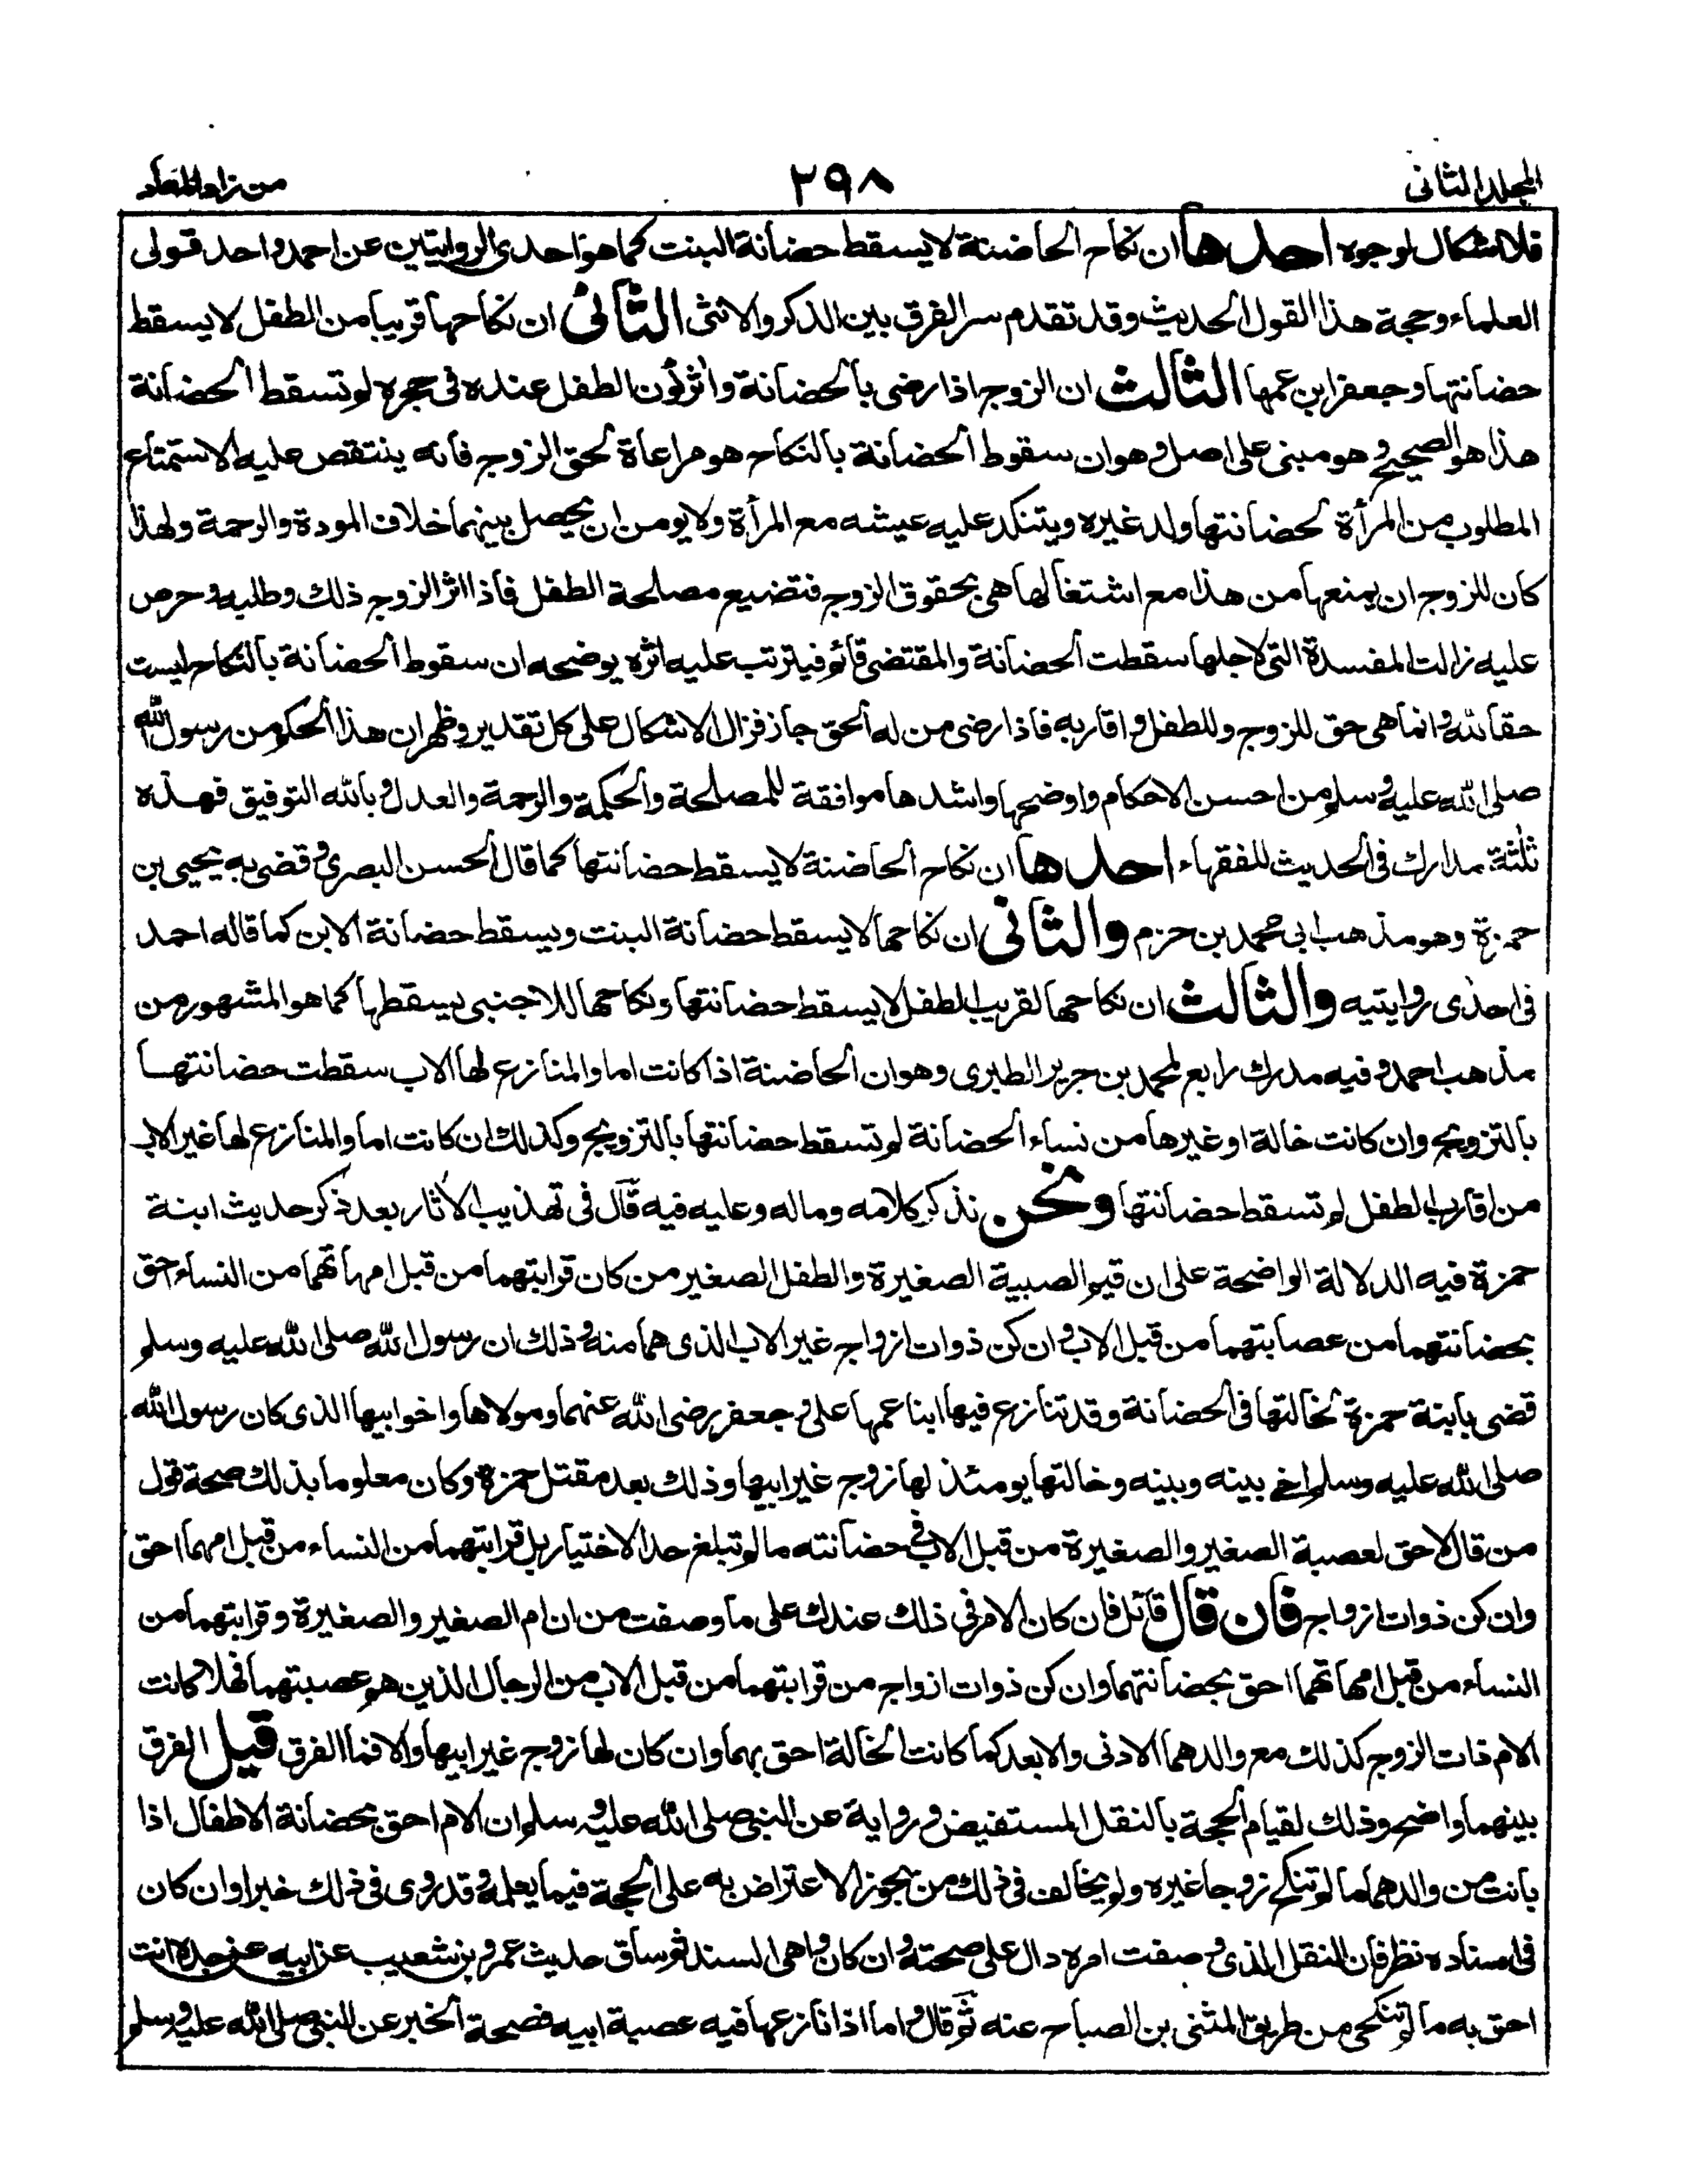 المجلد الثانى
٢٩٨
من زاد المعاد
فلا اشكال لوجوه احدها ان نكاح الحاضنة لا يسقط حضانة البنت كما هو احدى الروايتين عن احمد و احد قولى
العلماء وحجة هذا القول الحديث وقد تقدم سر الفرق بين الذكر والانثى الثانى ان نكاحها قريبا من الطفل لا يسقط
حضانتها وجعفر ابن عمها الثالث ان الزوج اذا رضى بالحضانة واثر كون الطفل عنده فى حجره لم تسقط الحضانة
هذا هو الصحيح و هو مبنى على اصل و هو ان سقوط الحضانة بالنكاح هو مراعاة لحق الزوج فانه ينتقص عليه الاستمتاع
المطلوب من المرأة لحضانتها ولد غيره ويتنكد عليه عيشه مع المرأة ولا يومن ان يحصل بينهما خلاف المودة والرحمة ولهذا
كان للزوج ان يمنعها من هذا مع اشتغالها هى بحقوق الزوج فتضيع مصلحة الطفل فاذا اثر الزوج ذلك وطلبه و حرص
عليه زالت المفسدة التى لاجلها سقطت الحضانة والمقتضى قائم فيترتب عليه اثره يوضحه ان سقوط الحضانة بالنكاح ليست
حقا لله و انما هى حق للزوج وللطفل و اقاربه فاذا رضى من له الحق جاز فزال الاشكال على كل تقدير وظهر ان هذا الحكم من رسول الله
صلى الله عليه و سلم من احسن الاحكام واوضحها واشدها موافقة للمصلحة والحكمة والرحمة والعدل و بالله التوفيق فهذه
ثلثة مدارك فى الحديث للفقهاء احدها ان نكاح الحاضنة لا يسقط حضانتها كما قال الحسن البصرى و قضى به يحيى بن
حمزة وهو مذهب ابى محمد بن حزم والثانى ان نكاحها لا يسقط حضانة البنت ويسقط حضانة الابن كما قاله احمد
فى احدى روايتيه والثالث ان نكاحها لقريب الطفل لا يسقط حضانتها ونكاحها للاجنبى يسقطها كما هو المشهور من
مذهب احمد و فيه مدرك رابع لمحمد بن جرير الطبرى وهو ان الحاضنة اذا كانت اما والمنازع لها الاب سقطت حضانتها
بالتزويج وان كانت خالة او غيرها من نساء الحضانة لم تسقط حضانتها بالتزويج وكذلك ان كانت اما والمنازع لها غير الاب
من اقارب الطفل لم تسقط حضانتها ونحن نذكر كلامه وماله وعليه فيه قال فى تهذيب الأثار بعد ذكر حديث ابنة
حمزة فيه الدلالة الواضحة على ان قيم الصبية الصغيرة والطفل الصغير من كان قرابتهما من قبل امهاتهما من النساء احق
بحضانتهما من عصابتهما من قبل الاب و ان كن ذوات ازواج غير الاب الذى هما منه و ذلك ان رسول الله صلى الله عليه وسلم
قضى بابنة حمزة لخالتها فى الحضانة وقد تنازع فيها ابنا عمها على و جعفر رضى الله عنهما ومولاها واخو ابيها الذى كان رسول الله
صلى الله عليه وسلم اخى بينه وبينه وخالتها يومئذ لها زوج غير ابيها وذلك بعد مقتل حمزة وكان معلوما بذلك صحة قول
من قال لا حق لعصبة الصغير والصغيرة من قبل الاب فى حضانته ما لم تبلغ حد الاختيار بل قرابتهما من النساء من قبل امهما احق
وان كن ذوات ازواج فان قال قائل فان كان الامر فى ذلك عندك على ما وصفت من ان ام الصغير والصغيرة وقرابتهما من
النساء من قبل امهاتهما احق بحضانتهما وان كن ذوات ازواج من قرابتهما من قبل الاب من الرجال الذين هم عصبتهما فهلا كانت
الام ذات الزوج كذلك مع والدهما الادنى والابعد كما كانت الخالة احق بهما وان كان لها زوج غير ابيها والا فما الفرق قيل الفرق
بينهما واضح وذلك لقيام الحجة بالنقل المستفيض و رواية عن النبى صلى الله عليه و سلم ان الام احق بحضانة الاطفال اذا
بانت من والدهما ما لم تنكح زوجا غيره ولم يخالف فى ذلك من يجوز الاعتراض به على الحجة فيما يعلمه و قد روى فى ذلك خبر او ان كان
فى اسناده نظر فان النقل الذى و صفت امره دال على صحته و ان كان واهى السند ثم ساق حديث عمرو بن شعيب عن ابيه عن جده انت
احق به ما لم تنكحى من طريق المثنى بن الصباح عنه ثم قال و اما اذا نازعها فيه عصبة ابيه فصحة الخبر عن النبى صلى الله عليه و سلم